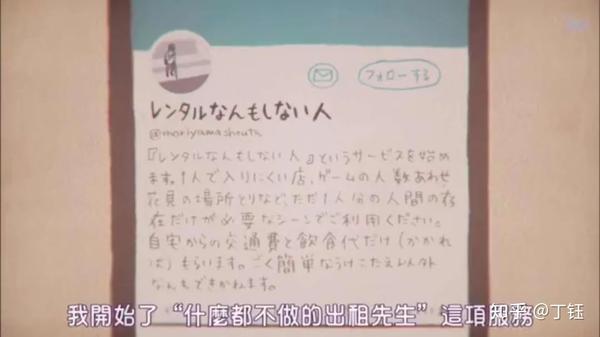 フォローする
レンタルなんもしない人
@moriyamashouta
『レンタルなんもしない人』というサービスを始め
ます。1人で入りにくい店、ゲームの人数あわせ、
花見の場所とりなど、ただ1人分の人間の存
在だけが必要なシーンでご利用ください。
自宅からの交通費と飲食代だけ(かかれ
ば)もらいます。ごく簡単なうけこたえ以外
なんもできかねます。
我開始了“什麼都不做的出租先生”這項服務
知乎 @丁钰